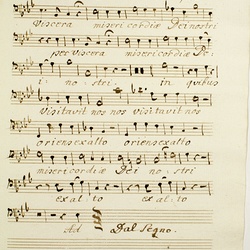 Viscera misericordiæ Dei nostri
per viscera misericordiæ Dei:
i: no: stri. in quibus
Visitavit nos nos visitavit nos
oriens exalto oriens exalto
misericordiæ Dei no: stri
ex al: to ex al: to
Ad Dal Segno.